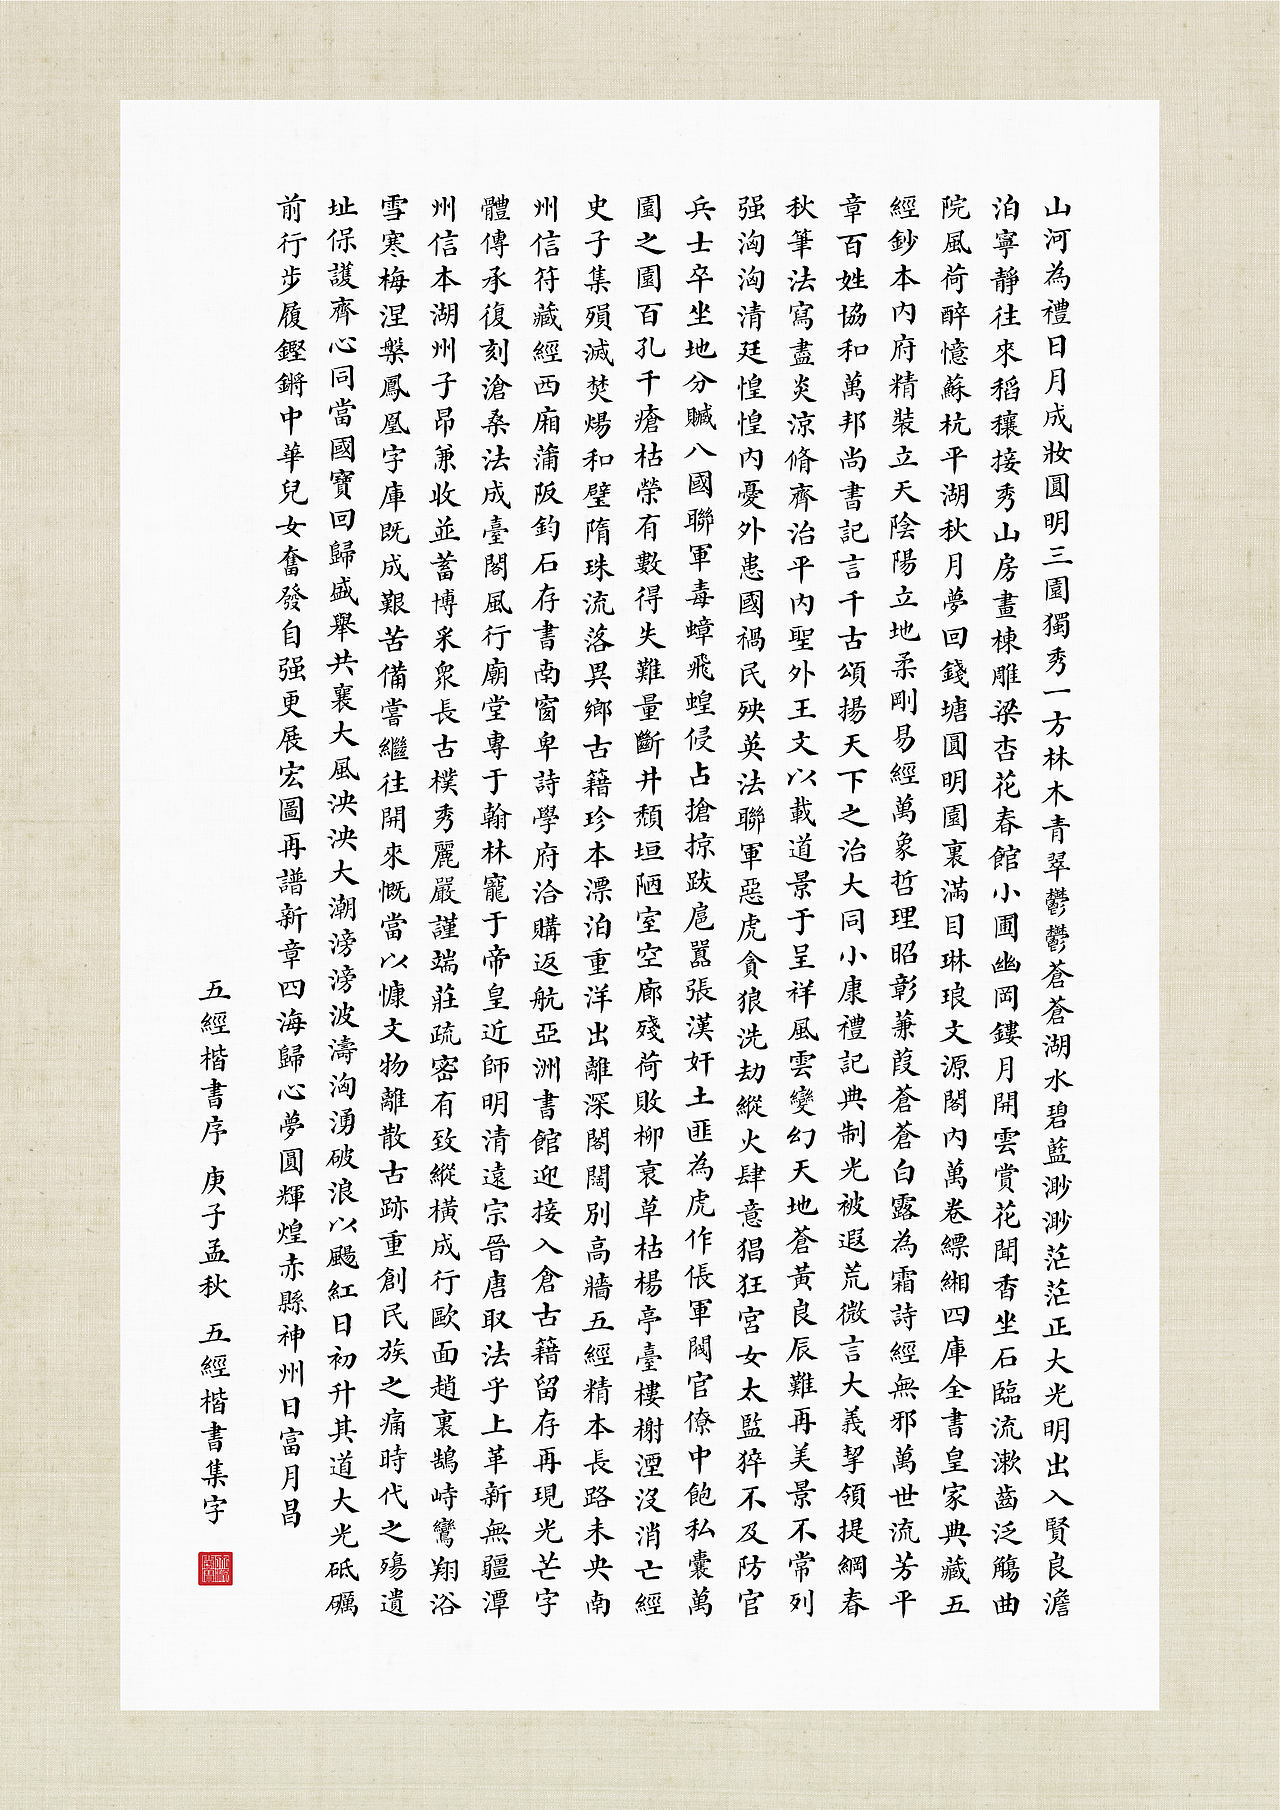 山河為禮日月成妝圓明三園獨秀一方林木青翠鬱鬱蒼蒼湖水碧藍渺渺茫茫正大光明出入賢良澹
泊寧靜往來稻穰接秀山房畫棟雕梁杏花春館小圃幽岡鏤月開雲賞花聞香坐石臨流漱齒泛觴曲
院風荷醉憶蘇杭平湖秋月夢回錢塘圓明園裏滿目琳琅文源閣內萬卷縹緗四庫全書皇家典藏五
經鈔本內府精裝立天陰陽立地柔剛易經萬象哲理昭彰蒹葭蒼蒼白露為霜詩經無邪萬世流芳平
章百姓協和萬邦尚書記言千古頌揚天下之治大同小康禮記典制光被遐荒微言大義挈領提綱春
秋筆法寫盡炎涼脩齊治平內聖外王文以載道景于呈祥風雲變幻天地蒼黃良辰難再美景不常列
强洶洶清廷惶惶內憂外患國禍民殃英法聯軍惡虎貪狼洗劫縱火肆意猖狂宮女太監猝不及防官
兵士卒坐地分贓八國聯軍毒蟑飛蝗侵占搶掠跋扈囂張漢奸土匪為虎作倀軍閥官僚中飽私囊萬
園之園百孔千瘡枯榮有數得失難量斷井頹垣陋室空廊殘荷敗柳哀草枯楊亭臺樓榭湮沒消亡經
史子集殞滅焚煬和璧隋珠流落異鄉古籍珍本漂泊重洋出離深閣闊別高牆五經精本長路未央南
州信符藏經西廂蒲阪鈞石存書南窗卑詩學府洽購返航亞洲書館迎接入倉古籍留存再現光芒字
體傳承復刻滄桑法成臺閣風行廟堂專于翰林寵于帝皇近師明清遠宗晉唐取法乎上革新無疆潭
州信本湖州子昂兼收並蓄博采衆長古樸秀麗嚴謹端莊疏密有致縱橫成行歐面趙裏鵠峙鸞翔浴
雪寒梅涅槃鳳凰字庫既成艱苦備嘗繼往開來慨當以慷文物離散古跡重創民族之痛時代之殤遺
址保護齊心同當國寶回歸盛舉共襄大風泱泱大潮滂滂波濤洶湧破浪以颺紅日初升其道大光砥礪
前行步履鏗鏘中華兒女奮發自强更展宏圖再譜新章四海歸心夢圓輝煌赤縣神州日富月昌
五經楷書序 庚子孟秋 五經楷書集字